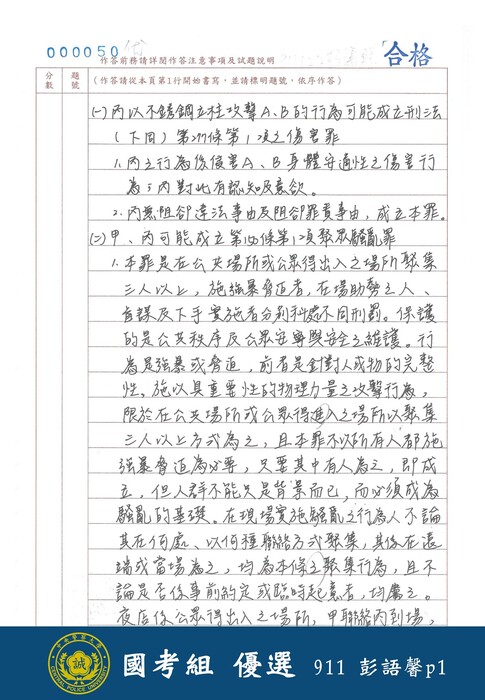 000050
作答前務請詳閱作答注意事項及試題說明
合格
分數
題號
(作答請從本頁第1行開始書寫，並請標明題號，依序作答)
(一)丙以不銹鋼立柱攻擊A、B的行為可能成立刑法
(下同)第277條第1項之傷害罪
1.丙之行為係侵害A、B身體安適性之傷害行
為;丙對此有認知及意欲。
2.丙無阻卻違法事由及阻卻罪責事由，成立本罪。
(二)甲、丙可能成立第150條第1項聚眾騷亂罪
1.本罪是在公共場所或公眾得出入之場所聚集
三人以上，施強暴脅迫者，在場助勢之人、
首謀及下手實施者分別科處不同刑罰。保護
的是公共秩序及公眾安寧與安全之維護。行
為是強暴或脅迫，前者是針對人或物的完整
性、施以具重要性的物理力量之攻擊行為，
限於在公共場所或公眾得進入之場所以聚集
三人以上方式為之，且本罪不以所有人都施
強暴脅迫為必要，只要其中有人為之，即成
立，但人群不能只是背景而已，而必須成為
騷亂的基礎。在現場實施騷亂之行為人不論
其在何處、以何種聯絡方式聚集，其係在遠
端或當場為之，均為本條之聚集行為，且不
論是否係事前約定或臨時起意者，均屬之。
夜店係公眾得出入之場所，甲聯絡丙到場，
誠
CENTRAL POLICE UNIVERSITY
國考組 優選 911 彭語馨p1